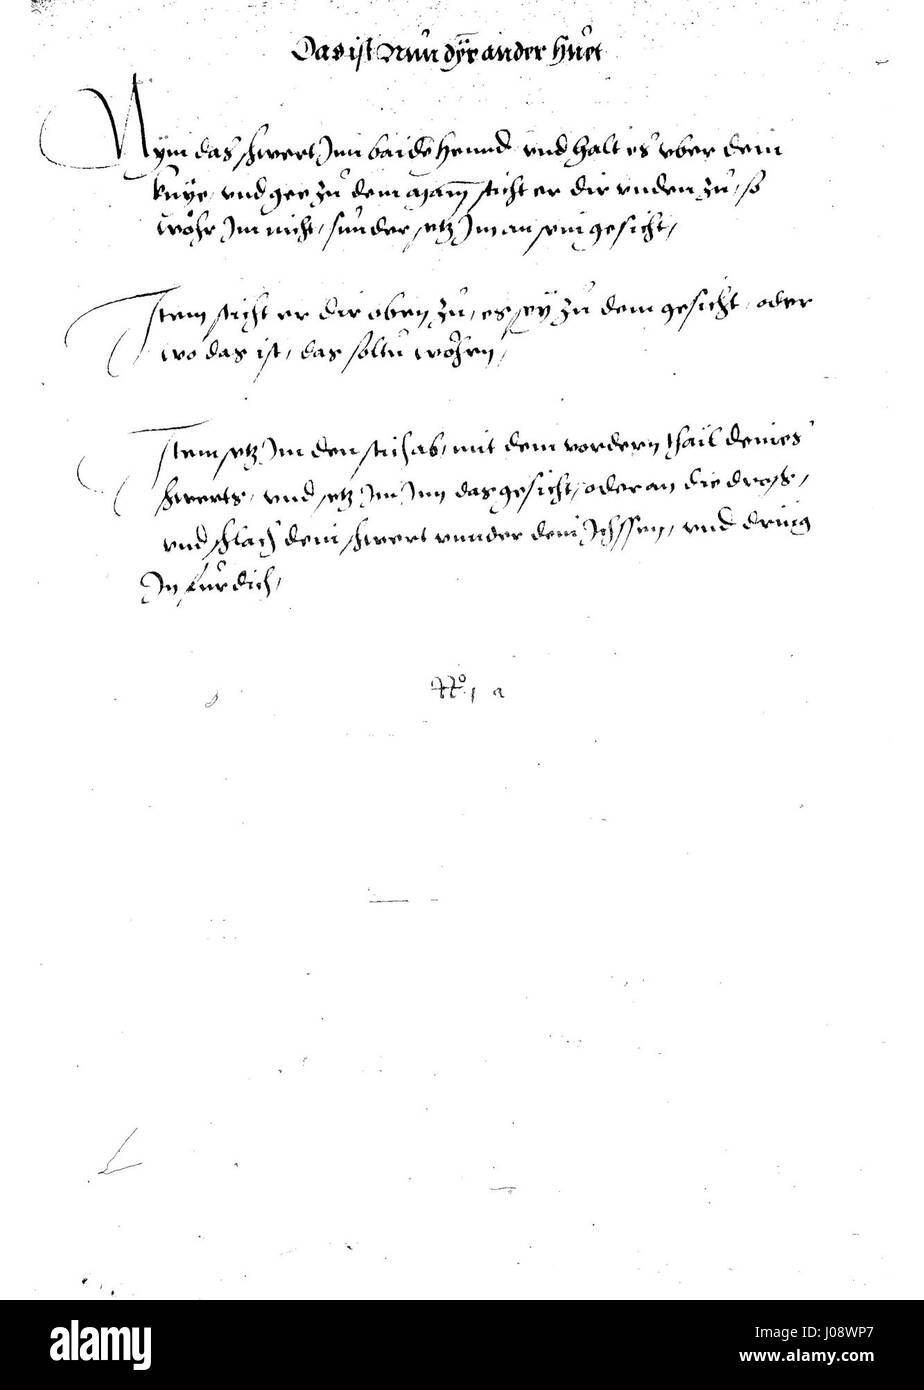 Das ist Nun dÿe ander Huet
Nym das schwert Inn baide hennd vnd halt es vber dein
knÿe, vnd gee zu dem Mann, sticht er dir vnden zu, so
wöhr Im nicht, sunder setz Im an sein gesicht,
Item sticht er dir oben zu, es seÿ zu dem gesicht, oder
wo das ist, das soltu wöhren,
Item setz Im den stich ab, mit dem vordern thail deines
schwerts, vnd setz Im Inn das gesicht, oder an die dross,
vnd schlach dein schwert vnnder dein Ichssen, vnd dring
In für dich,
Nº. 1 a
alamy
alamy
Image ID: J08WP7
www.alamy.com